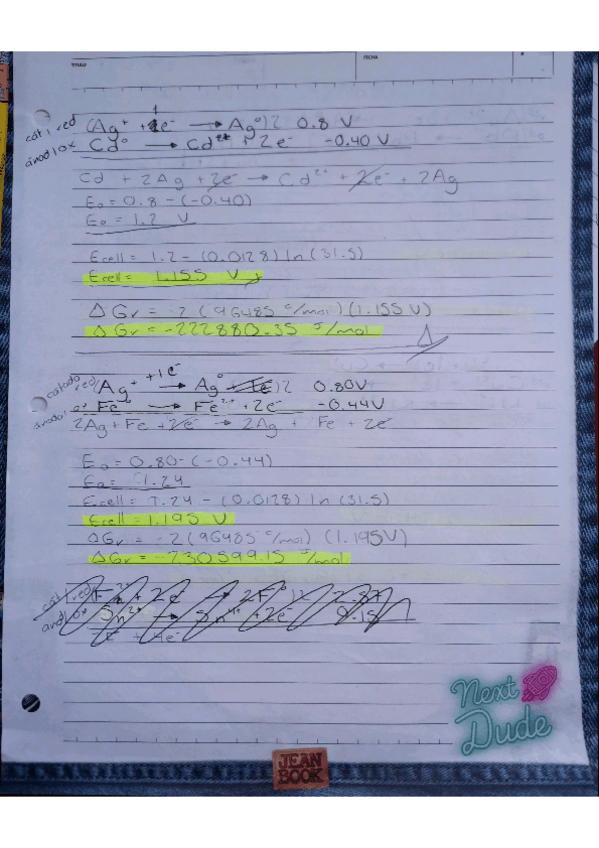 TITULO
FECHA
cát | red (Ag⁺ + 1e⁻ → Ag⁰)2 0.8 V
ánod | ox Cd⁰ → Cd²⁺ + 2e⁻ -0.40 V
Cd + 2Ag + 2e⁻ → Cd²⁺ + 2e⁻ + 2Ag
E₀ = 0.8 - (-0.40)
E₀ = 1.2 V
Ecell = 1.2 - (0.0128) ln (31.5)
Ecell = 1.155 V
ΔGr = -2 (96485 C/mol) (1.155 V)
ΔGr = -222880.35 J/mol
cátodo red (Ag⁺ +1e⁻ → Ag⁰ + 1e⁻)2 0.80V
Fe⁰ → Fe²⁺ + 2e⁻ -0.44V
2Ag + Fe + 2e⁻ → 2Ag + Fe + 2e⁻
E₀ = 0.80 - (-0.44)
E₀ = 1.24
Ecell = 1.24 - (0.0128) ln (31.5)
Ecell = 1.195 V
ΔGr = -2 (96485 C/mol) (1.195V)
ΔGr = -230599.15 J/mol
cát | red
ánod | ox Sn²⁺ → Sn⁴⁺ + 2e⁻
Next
Dude
JEAN
BOOK